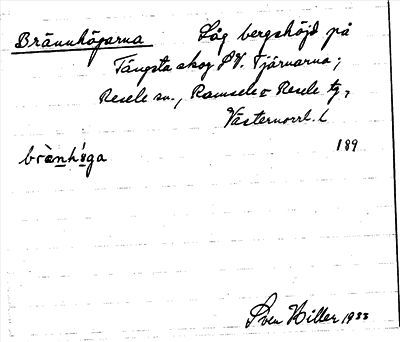 Brännhögarna Låg bergshöjd på
Tängsta skog S.V. Tjärnarna;
Resele sn., Ramsele o Resele tg,
Västernorrl. l
189
Sven Hiller 1933